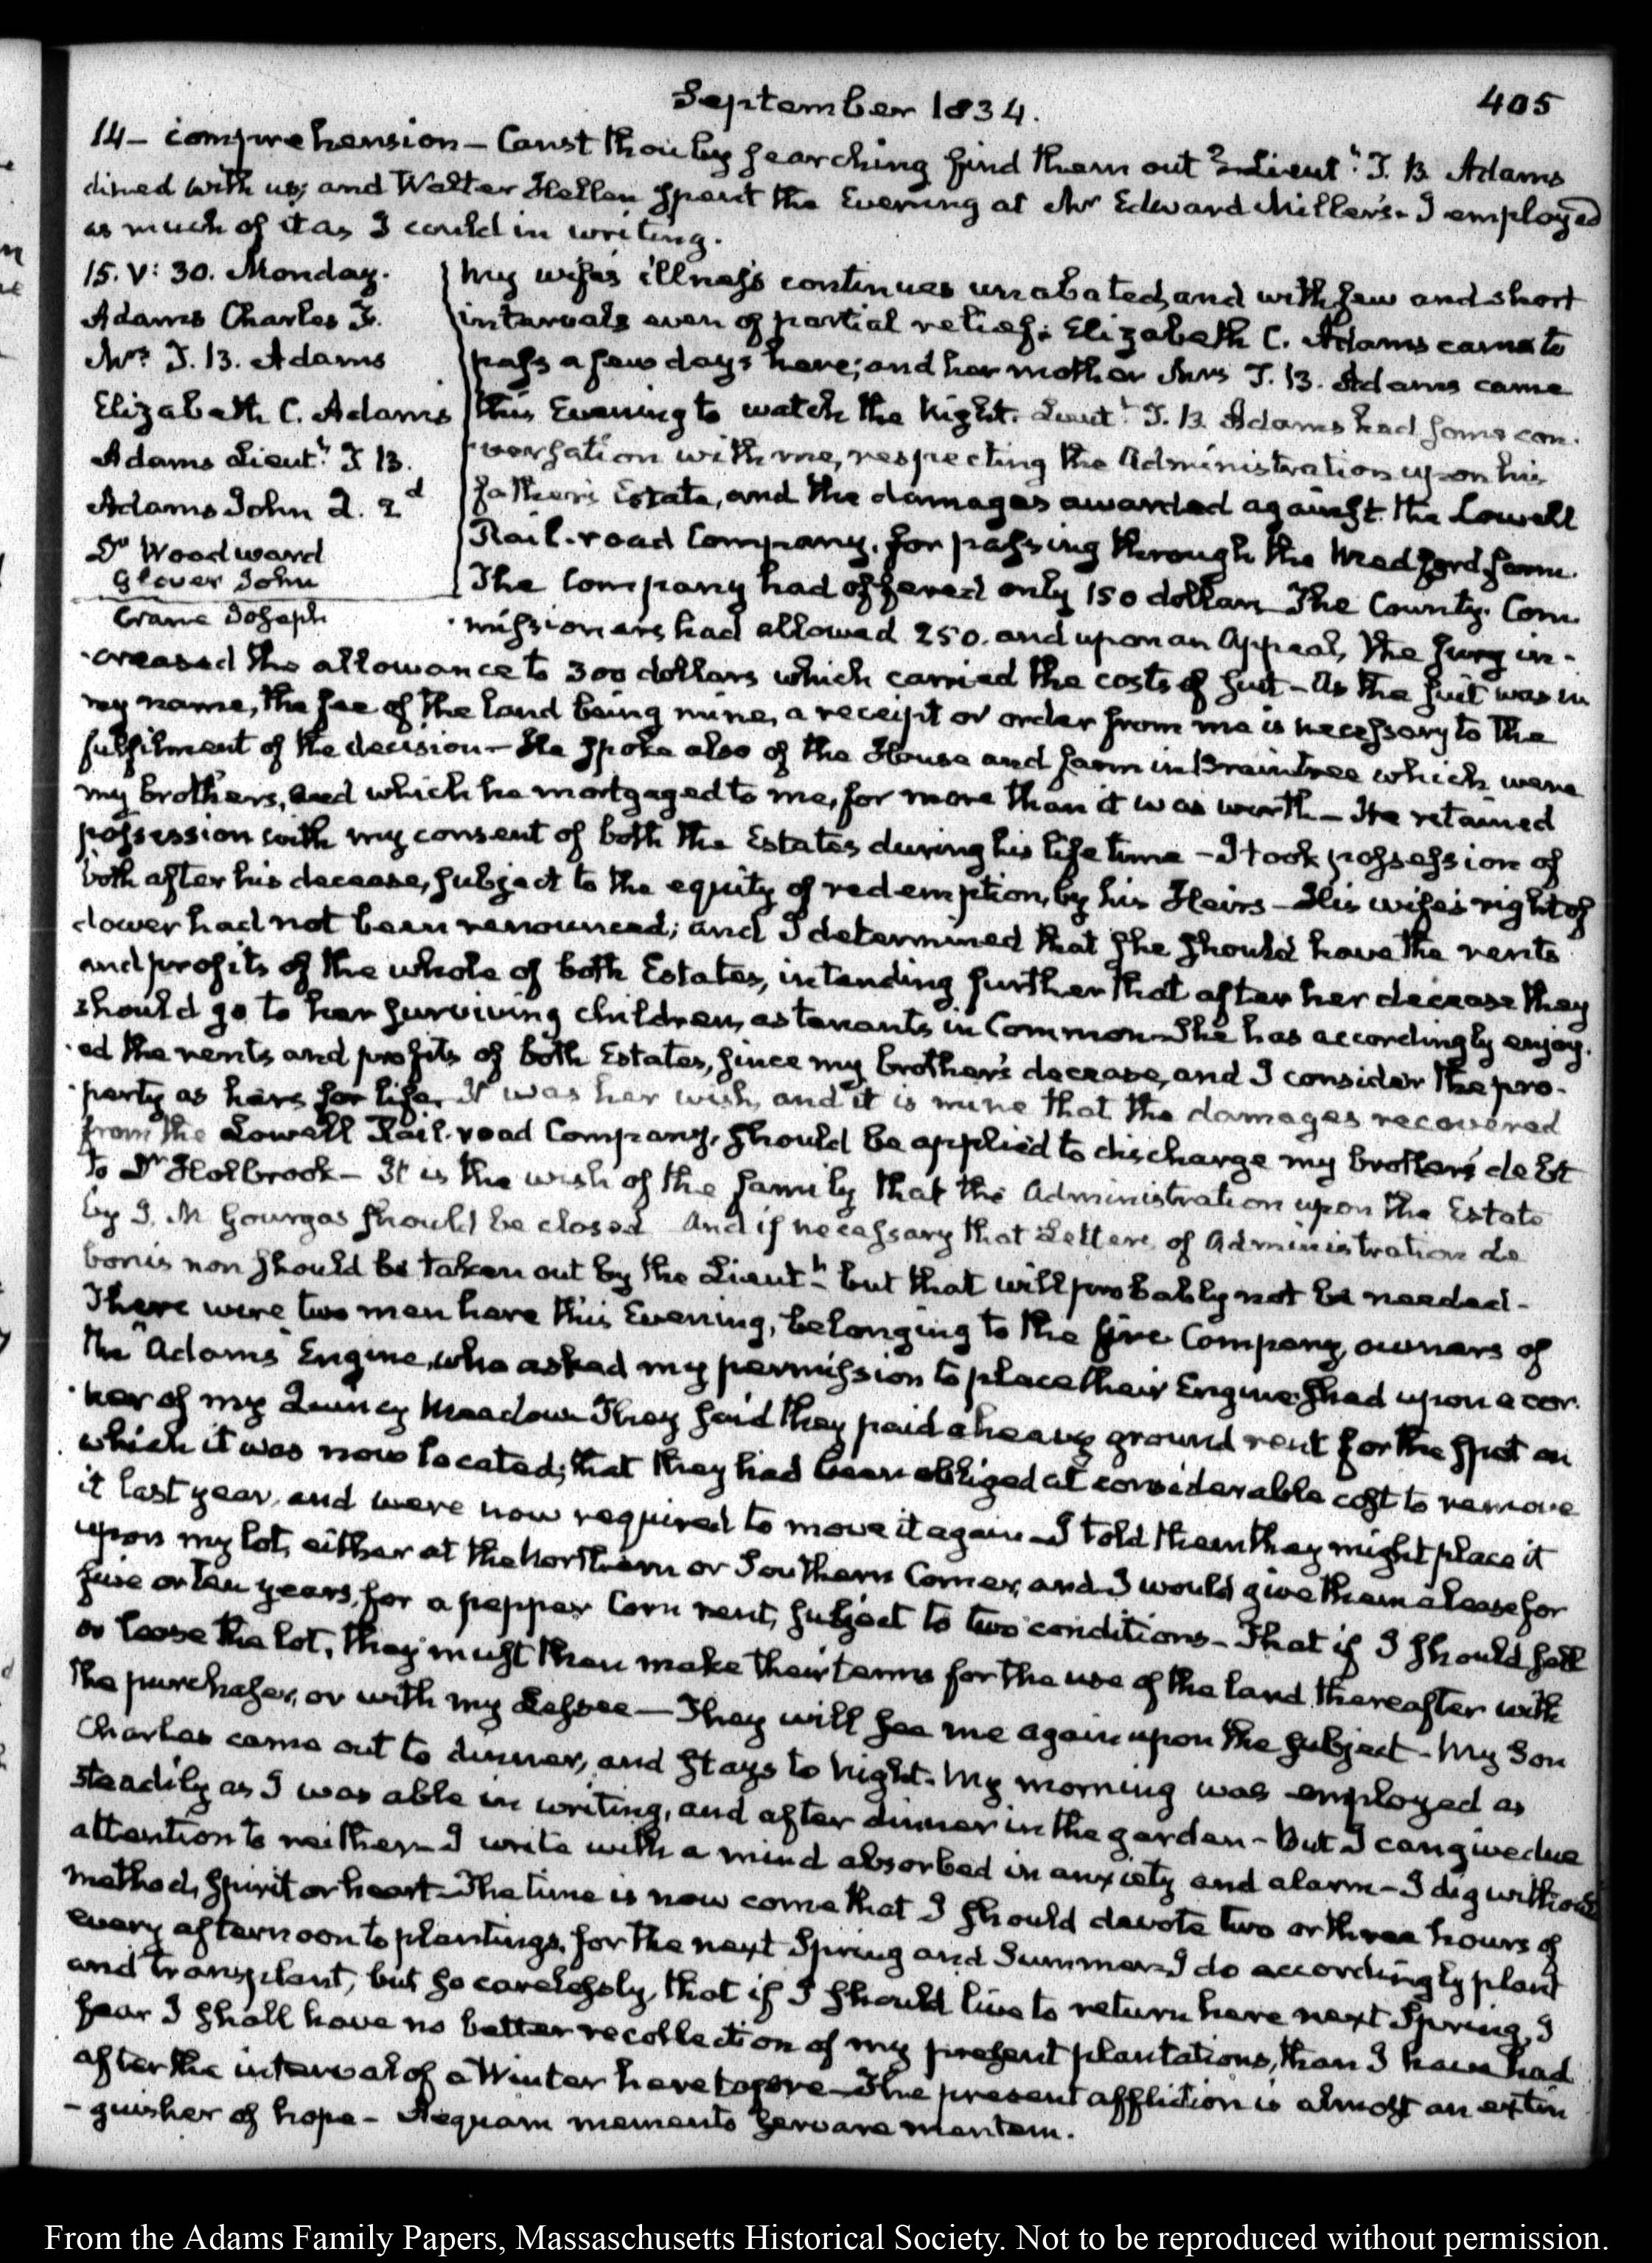 September 1834.
405
14 – comprehension – Canst thou by searching find them out? Lieut.t T. B. Adams
dined with us; and Walter Hellen spent the Evening at Mr Edward Miller's. I employed
as much of it as I could in writing.
15. V: 30. Monday.
Adams Charles F.
Mrs T. B. Adams
Elizabeth C. Adams
Adams Lieut.t T. B.
Adams John Q. 2d
Dr Woodward
Glover John
Crane Joseph
My wife's illness continues unabated, and with few and short
intervals even of partial relief. Elizabeth C. Adams came to
pass a few days here; and her mother Mrs T. B. Adams came
this Evening to watch the Night. Lieut.t T. B. Adams had some con-
-versation with me, respecting the Administration upon his
father's Estate, and the damages awarded against the Lowell
Rail-road Company, for passing through the Medford farm.
The Company had offered only 150 dollars. The County Com-
-missioners had allowed 250. and upon an Appeal, the jury in-
-creased the allowance to 300 dollars which carried the costs of suit – As the suit was in
my name, the fee of the land being mine, a receipt or order from me is necessary to the
fulfilment of the decision – He spoke also of the House and farm in Braintree which were
my brother's, and which he mortgaged to me, for more than it was worth – He retained
possession with my consent of both the Estates during his life time – I took possession of
both after his decease, subject to the equity of redemption, by his Heirs – His wife's right of
dower had not been renounced; and I determined that she should have the rents
and profits of the whole of both Estates, intending further that after her decease they
should go to her surviving children, as tenants in Common – She has accordingly enjoy-
-ed the rents and profits of both Estates, since my brother's decease, and I consider the pro-
-perty as hers for life. It was her wish, and it is mine that the damages recovered
from the Lowell Rail-road Company, should be applied to discharge my brother's debt
to Dr Holbrook – It is the wish of the family that the Administration upon the Estate
by J. M. Gourgas should be closed And if necessary that Letters of Administration de
bonis non should be taken out by the Lieut.t but that will probably not be needed –
There were two men here this Evening, belonging to the fire Company, owners of
the "Adams" Engine, who asked my permission to place their Engine shed upon a cor-
-ner of my Quincy Meadow. They said they paid a heavy ground rent for the spot on
which it was now located; that they had been obliged at considerable cost to remove
it last year, and were now required to move it again – I told them they might place it
upon my lot, either at the Northern or Southern Corner, and I would give them a lease for
five or ten years, for a pepper Corn rent, subject to two conditions – That if I should sell
or lease the lot, they must then make their terms for the use of the land thereafter with
the purchaser, or with my Lessee – They will see me again upon the subject – My Son
Charles came out to dinner, and stays to Night. My morning was employed as
steadily as I was able in writing, and after dinner in the garden – But I can give due
attention to neither – I write with a mind absorbed in anxiety and alarm – I dig without
method, spirit or heart – The time is now come that I should devote two or three hours of
every afternoon to plantings, for the next Spring and Summer – I do accordingly plant
and transplant, but so carelessly, that if I should live to return here next Spring, I
fear I shall have no better recollection of my present plantations, than I have had
after the interval of a Winter heretofore – The present affliction is almost an extin
-guisher of hope – Aequam memento servare mentem.
From the Adams Family Papers, Massachusetts Historical Society. Not to be reproduced without permission.